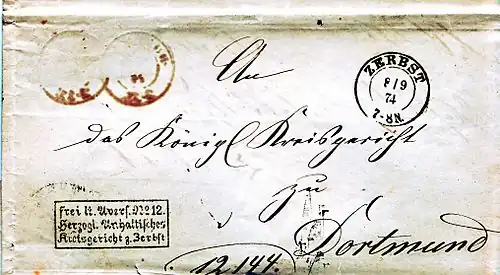 An
ZERBST
8/9
74
7-8N.
das Königl Kreisgericht
zu
Dortmund
frei lt. Avers. No 12.
Herzogl. Anhaltisches
Kreisgericht z. Zerbst
12.144.